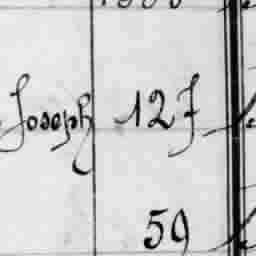 Joseph 127
59